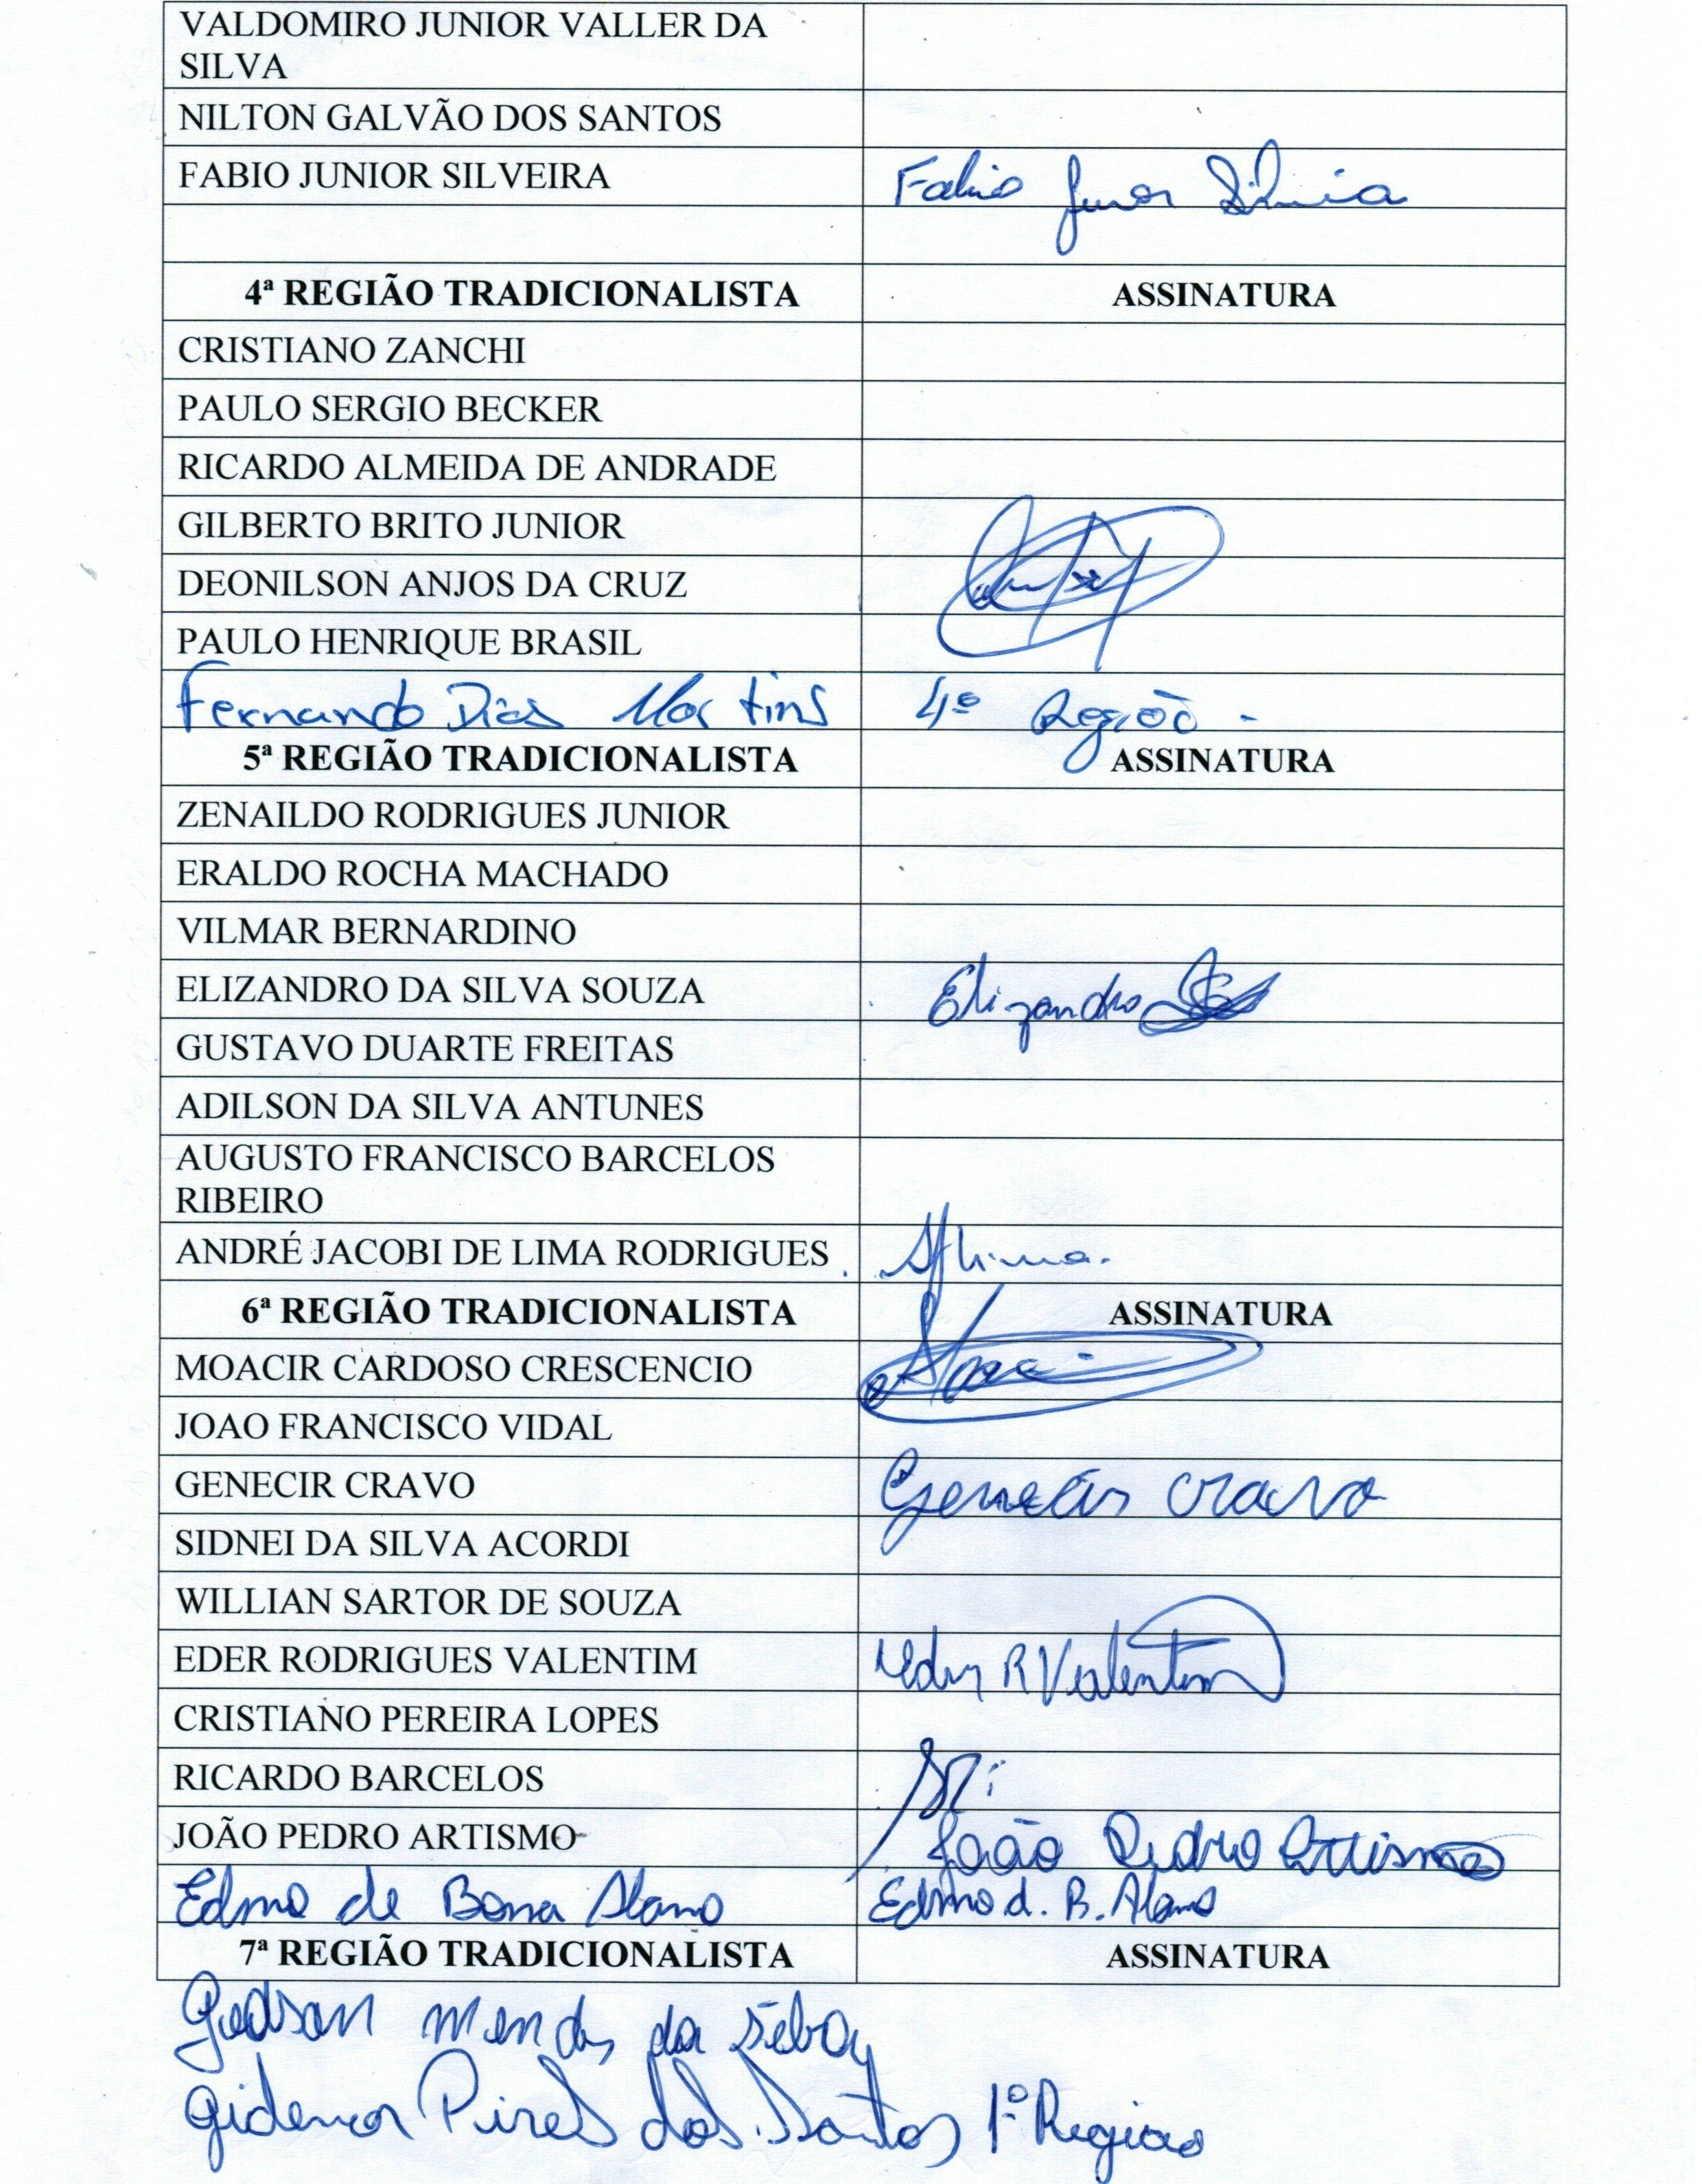 VALDOMIRO JUNIOR VALLER DA
SILVA
NILTON GALVÃO DOS SANTOS
FABIO JUNIOR SILVEIRA Fabio Junior Silveira
4ª REGIÃO TRADICIONALISTA ASSINATURA
CRISTIANO ZANCHI
PAULO SERGIO BECKER
RICARDO ALMEIDA DE ANDRADE
GILBERTO BRITO JUNIOR
DEONILSON ANJOS DA CRUZ
PAULO HENRIQUE BRASIL
Fernando Dias Martins 4º Região -
5ª REGIÃO TRADICIONALISTA ASSINATURA
ZENAILDO RODRIGUES JUNIOR
ERALDO ROCHA MACHADO
VILMAR BERNARDINO
ELIZANDRO DA SILVA SOUZA Elizandro
GUSTAVO DUARTE FREITAS
ADILSON DA SILVA ANTUNES
AUGUSTO FRANCISCO BARCELOS
RIBEIRO
ANDRÉ JACOBI DE LIMA RODRIGUES
6ª REGIÃO TRADICIONALISTA ASSINATURA
MOACIR CARDOSO CRESCENCIO
JOAO FRANCISCO VIDAL
GENECIR CRAVO Genecir Cravo
SIDNEI DA SILVA ACORDI
WILLIAN SARTOR DE SOUZA
EDER RODRIGUES VALENTIM Eder R Valentim
CRISTIANO PEREIRA LOPES
RICARDO BARCELOS
JOÃO PEDRO ARTISMO João Pedro Artismo
Edmo de Bona Alano Edmo d. B. Alano
7ª REGIÃO TRADICIONALISTA ASSINATURA
mendes da
Gidenor Pires dos Santos 1º Regiao